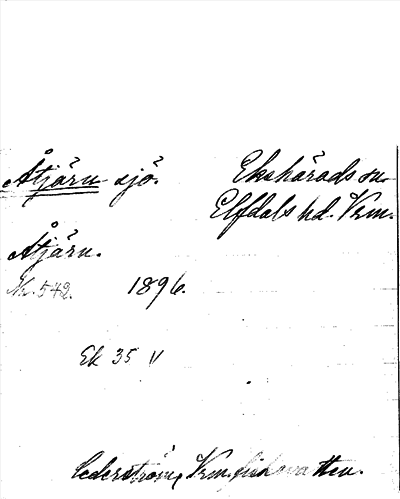 Åtjärn sjö. Ekshärads sn.
Elfdals hd. Vrm.
Åtjärn.
N. 542. 1896.
Ek 35 V
Cederström, Vrm. fiskevatten.